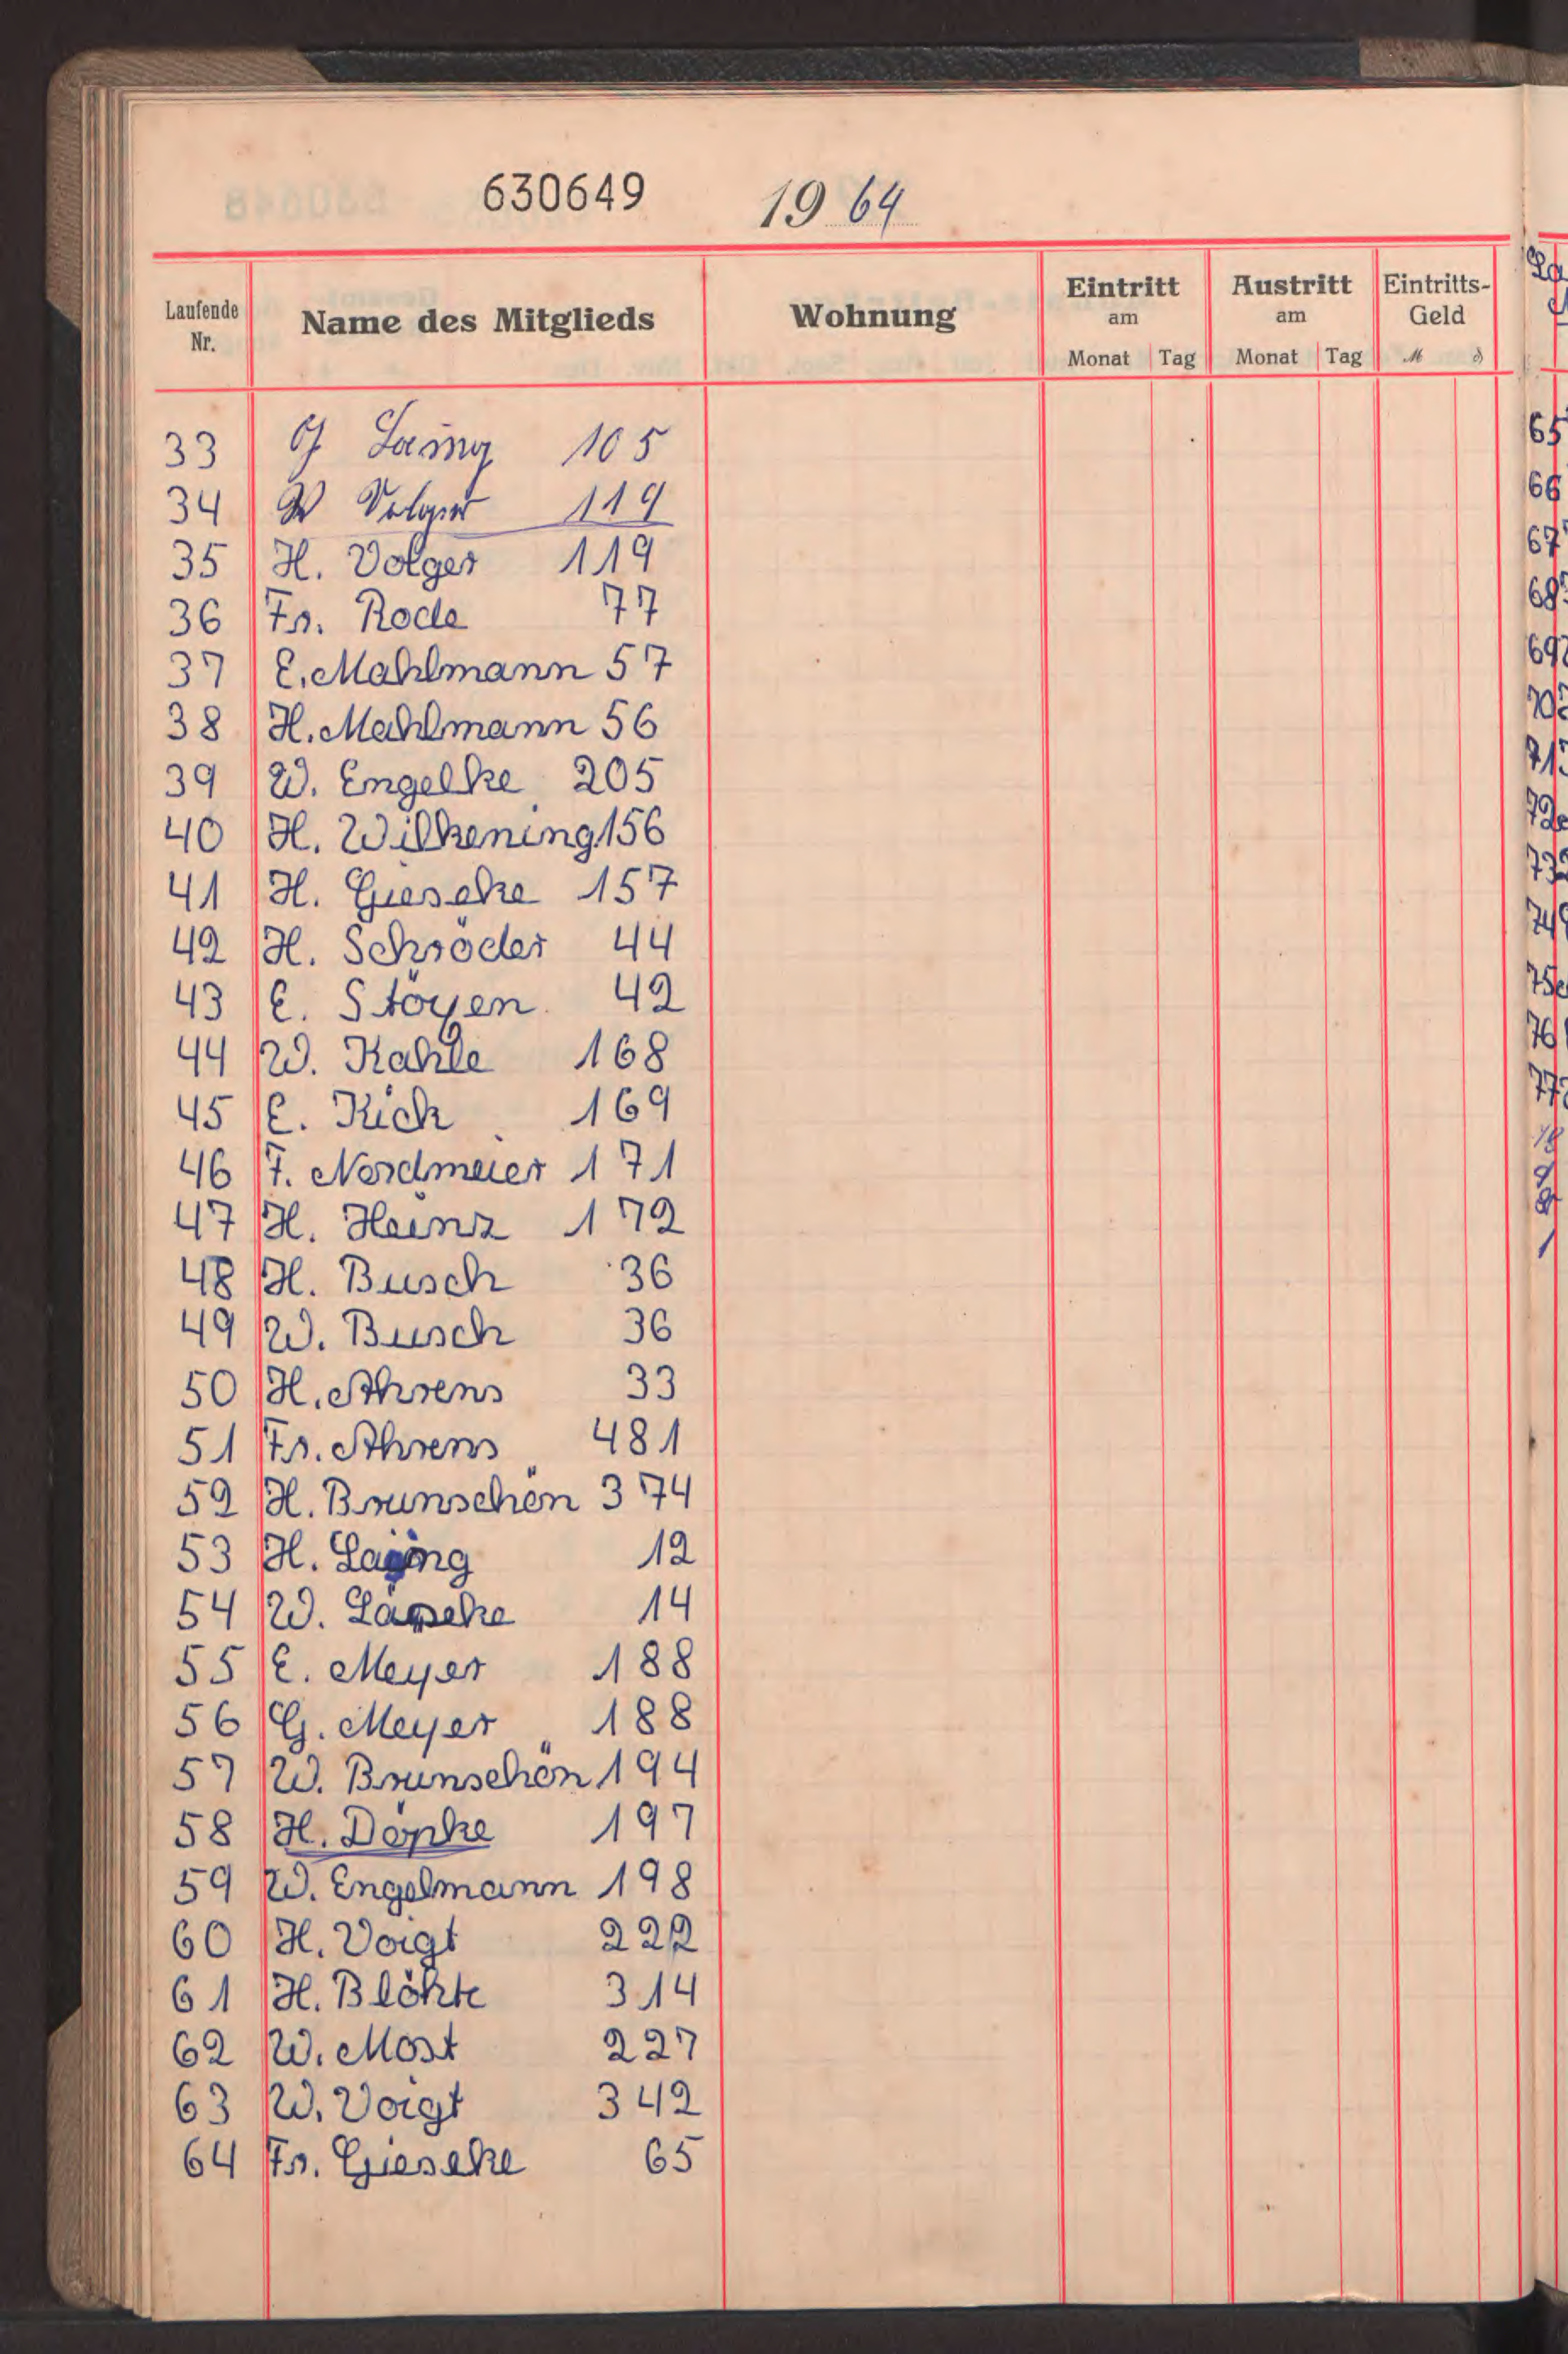 630649 1964
Laufende Nr. Name des Mitglieds Wohnung Eintritt am Monat Tag Austritt am Monat Tag Eintritts-Geld M ₰
33 105
34 W Volger 119
35 H. Volger 119
36 Fr. Rode 77
37 E. Mahlmann 57
38 H. Mahlmann 56
39 W. Engelke 205
40 H. Wilkening 156
41 H. Gieseke 157
42 H. Schröder 44
43 E. Stöyen 42
44 W. Kahle 168
45 E. Kick 169
46 F. Nordmeier 171
47 H. Heinz 172
48 H. Busch 36
49 W. Busch 36
50 H. Ahrens 33
51 Fr. Ahrens 481
52 H. Brunschön 374
53 H. 12
54 W. 14
55 E. Meyer 188
56 G. Meyer 188
57 W. Brunschön 194
58 H. Döpke 197
59 W. Engelmann 198
60 H. Voigt 222
61 H. Blöhte 314
62 W. Most 227
63 W. Voigt 342
64 Fr. Gieseke 65
65
66
67
68
69
70
71
72
73
74
75
76
77